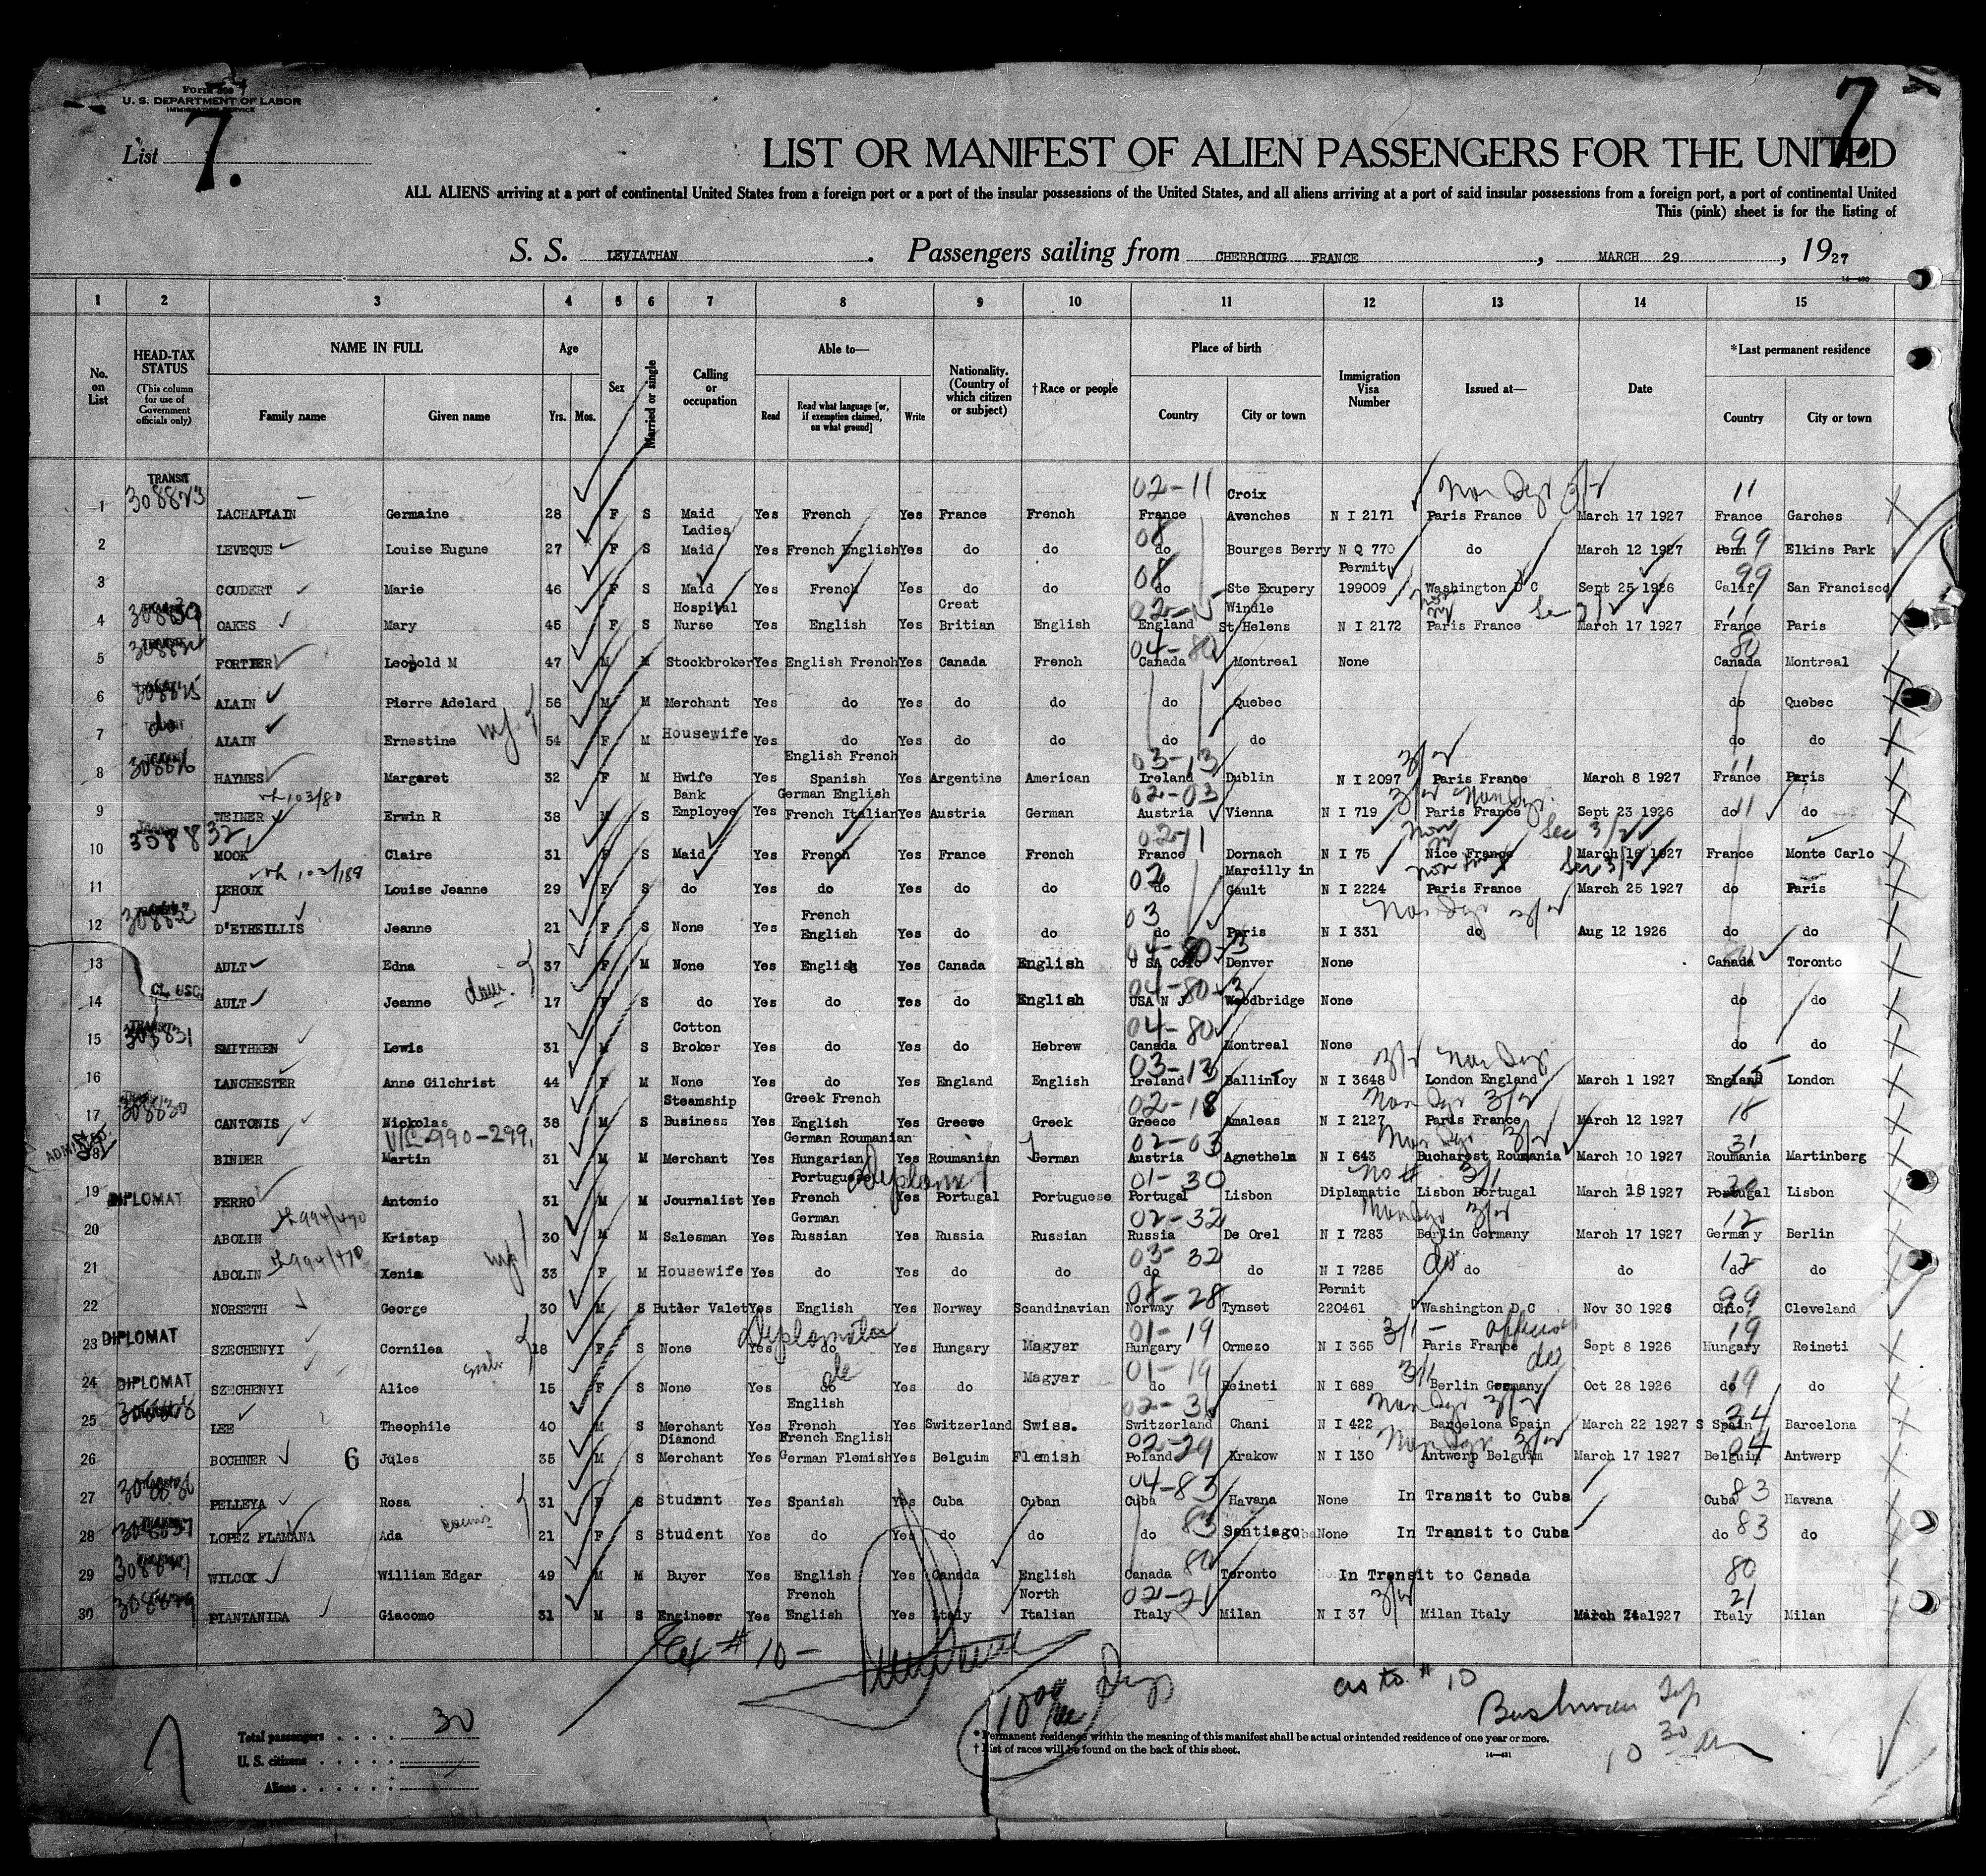 Form 500
U. S. DEPARTMENT OF LABOR
IMMIGRATION SERVICE
List 7. 7
LIST OR MANIFEST OF ALIEN PASSENGERS FOR THE UNITED
ALL ALIENS arriving at a port of continental United States from a foreign port or a port of the insular possessions of the United States, and all aliens arriving at a port of said insular possessions from a foreign port, a port of continental United
This (pink) sheet is for the listing of
S. S. LEVIATHAN . Passengers sailing from CHERBOURG FRANCE , MARCH 29 , 1927
1 2 3 4 5 6 7 8 9 10 11 12 13 14 15
No. on List HEAD-TAX STATUS (This column for use of Government officials only) NAME IN FULL Family name Given name Age Yrs. Mos. Sex Married or single Calling or occupation Able to— Read Read what language [or, if exemption claimed, on what ground] Write Nationality. (Country of which citizen or subject) †Race or people Place of birth Country City or town Immigration Visa Number Issued at— Date *Last permanent residence Country City or town
1 TRANSIT 308873 LACHAPLAIN Germaine 28 F S Maid Yes French Yes France French 02-11 France Croix Avenches N I 2171 Paris France March 17 1927 11 France Garches
2 LEVEQUE Louise Eugune 27 F S Ladies Maid Yes French English Yes do do 08 do Bourges Berry N Q 770 do March 12 1927 99 Penn Elkins Park
3 COUDERT Marie 46 F S Maid Yes French Yes do do 08 do Ste Exupery Permit 199009 Washington D C Sept 25 1926 99 Calif San Francisco
4 OAKES Mary 45 F S Hospital Nurse Yes English Yes Great Britian English 02-15 England Windle St Helens N I 2172 Paris France March 17 1927 11 France Paris
5 FORTIER Leopold M 47 M M Stockbroker Yes English French Yes Canada French 04-80 Canada Montreal None 80 Canada Montreal
6 ALAIN Pierre Adelard 56 M M Merchant Yes do Yes do do do Quebec do Quebec
7 do ALAIN Ernestine 54 F M Housewife Yes do Yes do do do do do do
8 HAYMES Margaret 32 F M Hwife Yes English French Spanish Yes Argentine American 03-13 Ireland Dublin N I 2097 Paris France March 8 1927 11 France Paris
9 WEINER Erwin R 38 M S Bank Employee Yes German English French Italian Yes Austria German 02-03 Austria Vienna N I 719 Paris France Sept 23 1926 11 do do
10 MOOK Claire 31 F S Maid Yes French Yes France French 02-11 France Dornach N I 75 Nice France March 16 1927 France Monte Carlo
11 LEHOUX Louise Jeanne 29 F S do Yes do Yes do do 02 do Marcilly in Gault N I 2224 Paris France March 25 1927 do Paris
12 D'ETREILLIS Jeanne 21 F S None Yes French English Yes do do 03 do Paris N I 331 do Aug 12 1926 do do
13 AULT Edna 37 F M None Yes English Yes Canada English U SA Colo Denver None Canada Toronto
14 CL USC AULT Jeanne 17 F S do Yes do Yes do English USA N J Woodbridge None do do
15 SMITHKEN Lewis 31 M S Cotton Broker Yes do Yes do Hebrew 04-80 Canada Montreal None do do
16 LANCHESTER Anne Gilchrist 44 F M None Yes do Yes England English 03-13 Ireland Ballintoy N I 3648 London England March 1 1927 15 England London
17 308830 CANTONIS Nickolas 38 M S Steamship Business Yes Greek French English Yes Greece Greek 02-18 Greece Amaleas N I 2127 Paris France March 12 1927 18
18 BINDER Martin 31 M M Merchant Yes German Roumanian Hungarian Yes Roumanian German 02-03 Austria Agnetheln N I 643 Bucharest Roumania March 10 1927 31 Roumania Martinberg
19 DIPLOMAT FERRO Antonio 31 M M Journalist Yes Portuguese French Yes Portugal Portuguese 01-30 Portugal Lisbon Diplamatic Lisbon Portugal March 18 1927 Portugal Lisbon
20 ABOLIN Kristap 30 M M Salesman Yes German Russian Yes Russia Russian 02-32 Russia De Orel N I 7283 Berlin Germany March 17 1927 12 Germany Berlin
21 ABOLIN Xenia 33 F M Housewife Yes do Yes do do 03-32 do do N I 7285 do do 12 do do
22 NORSETH George 30 M S Butler Valet Yes English Yes Norway Scandinavian 08-28 Norway Tynset Permit 220461 Washington D C Nov 30 1926 99 Ohio Cleveland
23 DIPLOMAT SZECHENYI Cornilea 18 F S None Yes do Yes Hungary Magyar 01-19 Hungary Ormezo N I 365 Paris France Sept 8 1926 19 Hungary Reineti
24 DIPLOMAT SZECHENYI Alice 15 F S None Yes do Yes do Magyar 01-19 do Reineti N I 689 Berlin Germany Oct 28 1926 19 do do
25 LEE Theophile 40 M S Merchant Yes English French Yes Switzerland Swiss. Switzerland Chani N I 422 Barcelona Spain March 22 1927 S Spain Barcelona
26 BOCHNER 6 Jules 35 M S Diamond Merchant Yes French English German Flemish Yes Belguim Flemish 02-29 Poland Krakow N I 130 Antwerp Belguim March 17 1927 Belguim Antwerp
27 PELLEYA Rosa 31 F S Student Yes Spanish Yes Cuba Cuban 04-83 Cuba Havana None In Transit to Cuba Cuba 83 Havana
28 LOPEZ FLAMANA Ada 21 F S Student Yes do Yes do do do 83 Santiago None In Transit to Cuba do 83 do
29 WILCOX William Edgar 49 M M Buyer Yes English Yes Canada English Canada 80 Toronto In Transit to Canada 80
30 PIANTANIDA Giacomo 31 M S Engineer Yes French English Yes Italy North Italian 02-21 Italy Milan N I 37 Milan Italy March 24 1927 21 Italy Milan
# 10 —
as to # 10
Total passengers . . . . 30
U. S. citizens . . . . .
Aliens . . . . . .
* Permanent residence within the meaning of this manifest shall be actual or intended residence of one year or more.
† List of races will be found on the back of this sheet.
Bushman
10 30 am